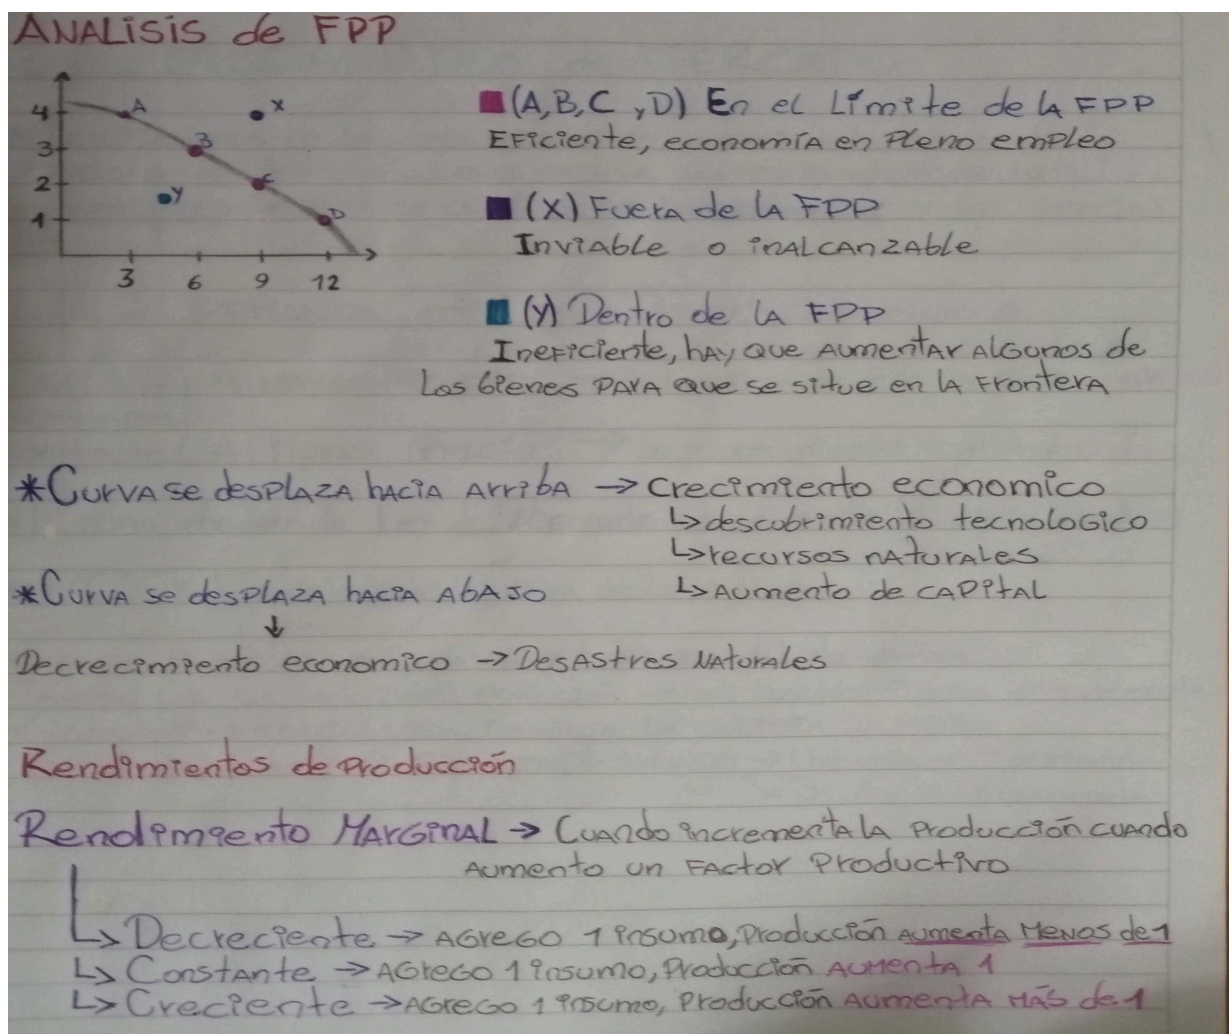 ANALISIS de FPP
4
3
2
1
A
X
B
Y
C
D
3 6 9 12
(A,B,C,D) En el Límite de la FPP
Eficiente, economía en Pleno empleo
(X) Fuera de la FPP
Inviable o inalcanzable
(Y) Dentro de la FPP
Ineficiente, hay que aumentar algunos de
los bienes para que se situe en la frontera
*Curva se desplaza hacia arriba → crecimiento economico
↳descubrimiento tecnologico
↳recursos naturales
*Curva se desplaza hacia abajo ↳Aumento de capital
↓
Decrecimiento economico → Desastres Naturales
Rendimientos de Producción
Rendimiento Marginal → Cuando incrementa la producción cuando
aumento un factor productivo
↳ Decreciente → Agrego 1 insumo, Producción aumenta menos de 1
↳ Constante → Agrego 1 insumo, Producción aumenta 1
↳ Creciente → Agrego 1 insumo, Producción aumenta más de 1